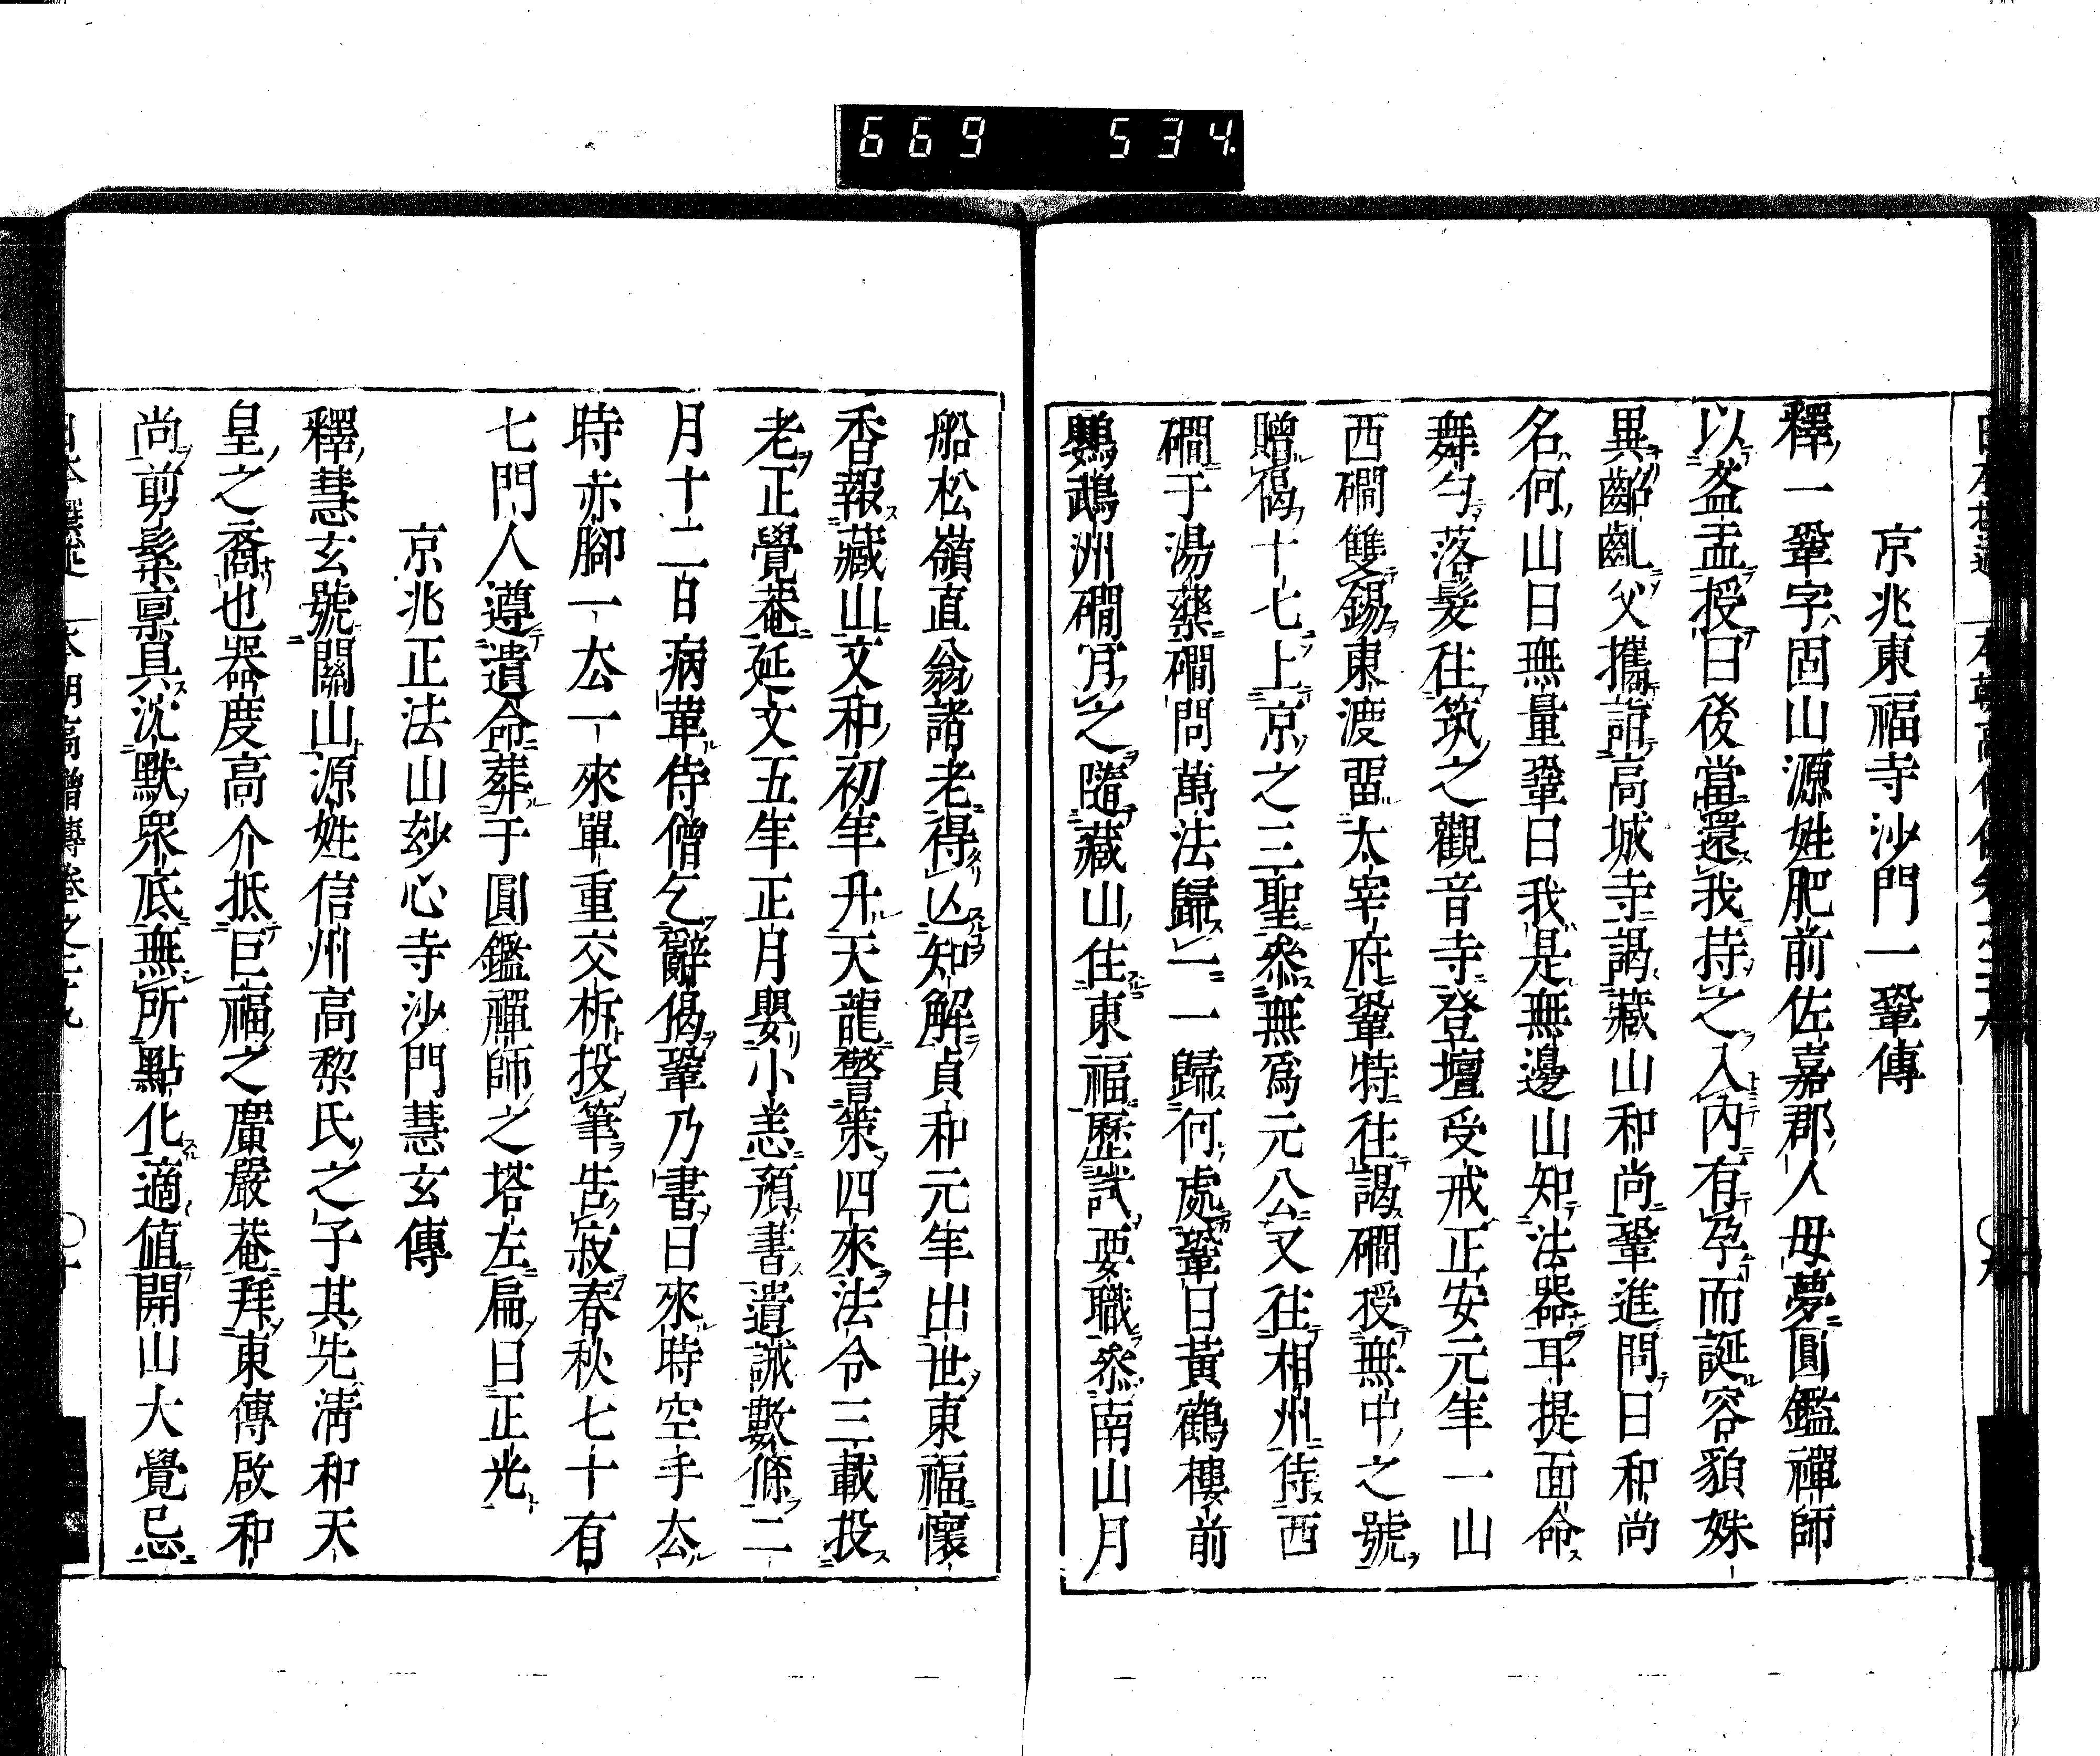 669 534
京兆東福寺沙門一鞏傳
釋一鞏字固山源姓肥前佐嘉郡人母夢圓鑑禪師
以盋盂授曰後當還我持之入内有孕而誕容貌姝
異齠齓父攜詣高城寺謁藏山和尚鞏進問曰和尚
名何山曰無量鞏曰我是無邊山知法器耳提面命
舞勺落髮往筑之觀音寺登壇受戒正安元年一山
西磵雙錫東渡畱太宰府鞏特往謁磵授無中之號
贈偈十七上京之三聖參無爲元公又往相州侍西
磵于湯藥磵問萬法歸一一歸何處鞏曰黃鶴樓前
鸚鵡洲磵肎之隨藏山住東福歷試要職參南山月
船松嶺直翁諸老得亾知解貞和元年出世東福懷
香報藏山文和初年升天龍警策四來法令三載投
老正覺菴延文五年正月嬰小恙預書遺誡數條二
月十二日病革侍僧乞辭偈鞏乃書曰來時空手厺
時赤脚一厺一來單重交柝投筆告寂春秋七十有
七門人遵遺命葬于圓鑑禪師之塔左扁曰正光
京兆正法山玅心寺沙門慧玄傳
釋慧玄號關山源姓信州高黎氏之子其先清和天
皇之裔也器度高介抵巨福之廣嚴菴拜東傳啟和
尚剪髮稟具沈默衆底無所點化適値開山大覺忌
本朝高僧傳卷之